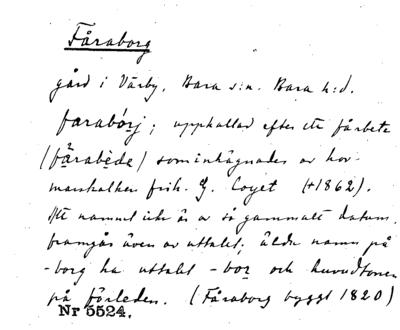 Fåraborg
gård i Värby, Bara s:n. Bara h:d.
farabórj; uppkallad efter ett fårbete
(fårabède) som inhägnades av hov-
marskalken frih. G. Coyet (+1862).
Att namnet icke är av så gammalt datum,
framgår även av uttalet; äldre namn på
-borg ha uttalet -bor och huvudtonen
på förleden. (Fåraborg byggt 1820)
Nr 5524.